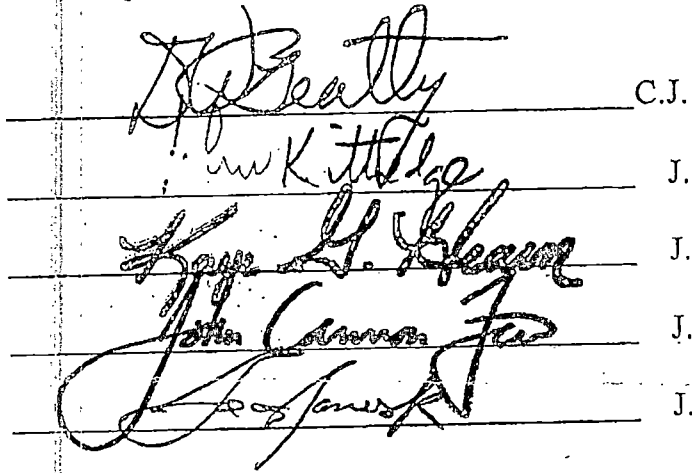 Beatty C.J.
Kittredge J.
Kaye G. Hearn J.
John Cannon Few J.
James J.